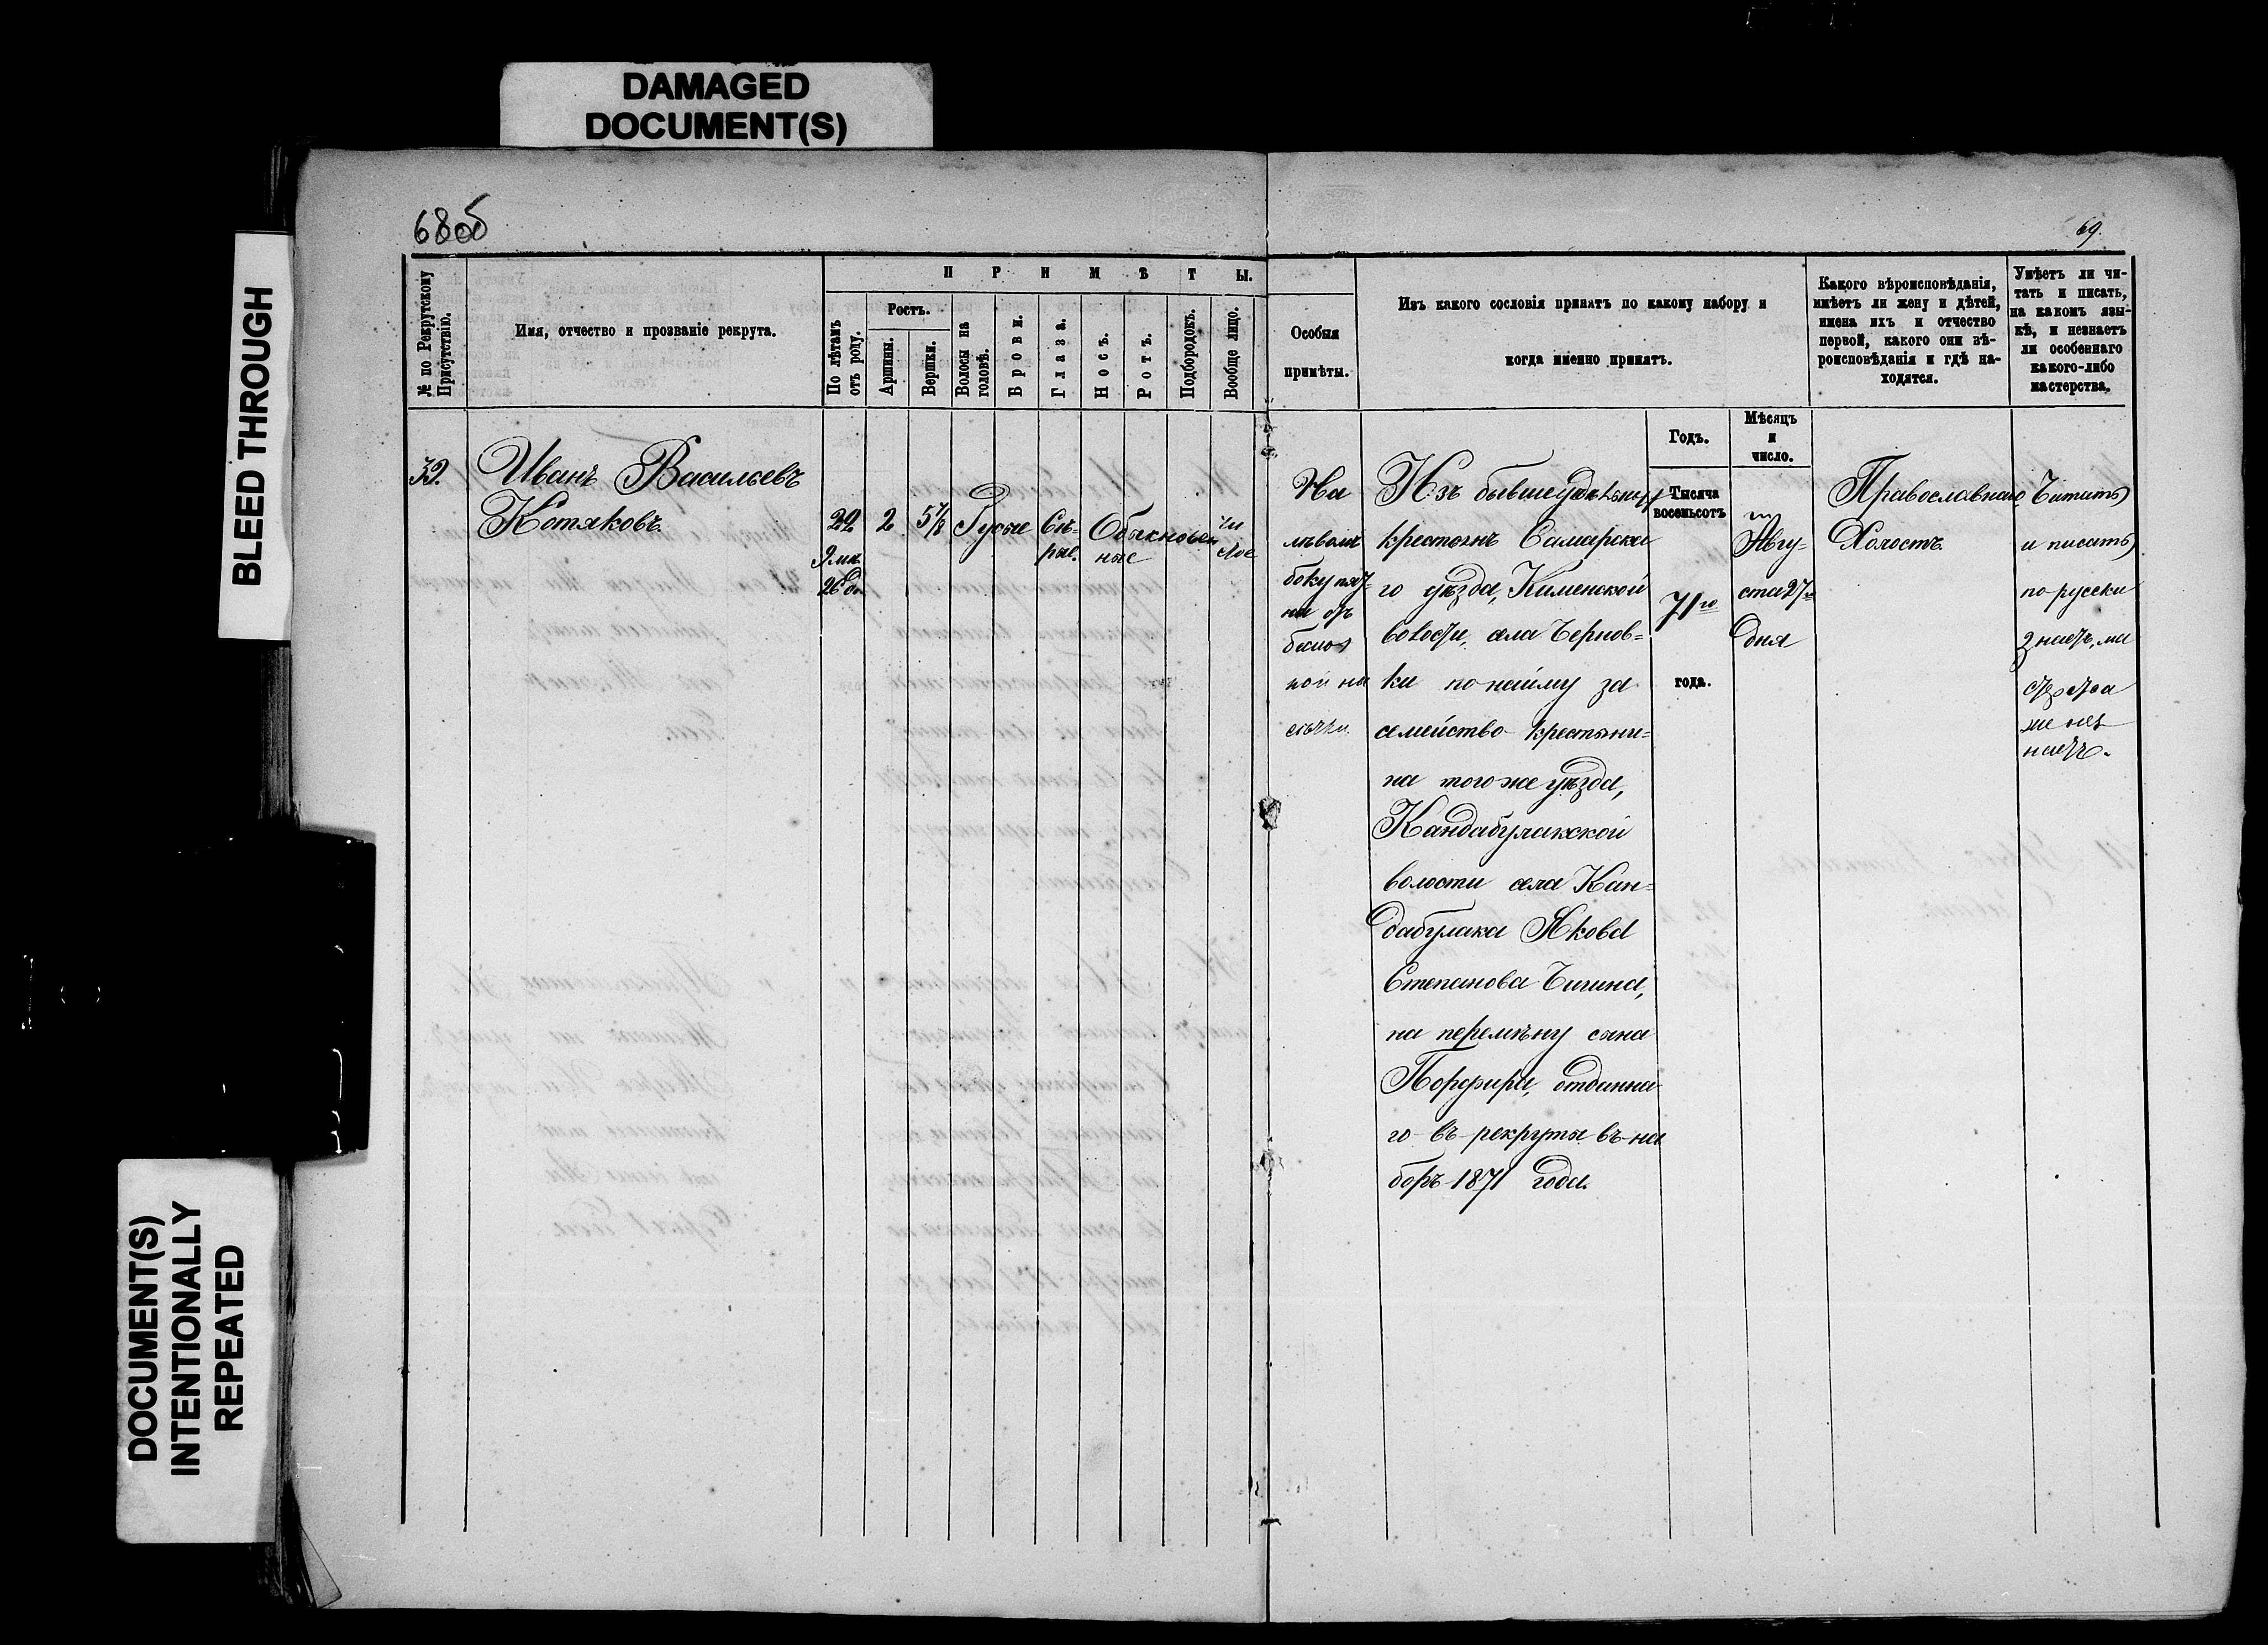 DAMAGED
DOCUMENT(S)
BLEED THROUGH
DOCUMENT(S)
INTENTIONALLY
REPEATED
68об
69.
№ по Рекрутскому
Присутствію.
Имя, отчество и прозваніе рекрута.
ПРИМѢТЫ.
По лѣтамъ
отъ роду.
Ростъ.
Аршины.
Вершки.
Волосы на
головѣ.
Брови.
Глаза.
Носъ.
Ротъ.
Подбородокъ.
Вообще лицо.
Особыя
примѣты.
Изъ какого сословія принятъ по какому набору и
когда именно принятъ.
Какого вѣроисповѣданія,
имѣетъ ли жену и дѣтей,
имена ихъ и отчество
первой, какого они вѣ-
роисповѣданія и гдѣ на-
ходятся.
Умѣетъ ли чи-
тать и писать,
на какомъ язы-
кѣ, и незнаетъ
ли особеннаго
какого-либо
мастерства.
Годъ.
Мѣсяцъ
и
число.
39.
Иванъ Васильевъ
Котяковъ.
22
9 мѣ.
26 дн
2
5⅞
Русые
Сѣ-
рые.
Обыкновен
ные
чи
стое
На
лѣвомъ
боку пят-
на отъ
нои на
Изъ бывше удѣльныхъ
крестьянъ Самарска
го уѣзда, Каменской
волости, села Чернов=
ки по найму за
семейство крестьяни=
на того же уѣзда,
Кандабулакской
волости села Кан=
дабулака Якова
Степанова Чигина,
на перемѣну сына
Порфира, отданна
го въ рекруты въ на
боръ 1871 года.
Тысяча
восемьсотъ
71го
года.
Авгу-
ста 27
дня
Православнаго
Холостъ.
Читать
и писать
по русски
знаетъ, ма
стерства
не нез
наетъ.